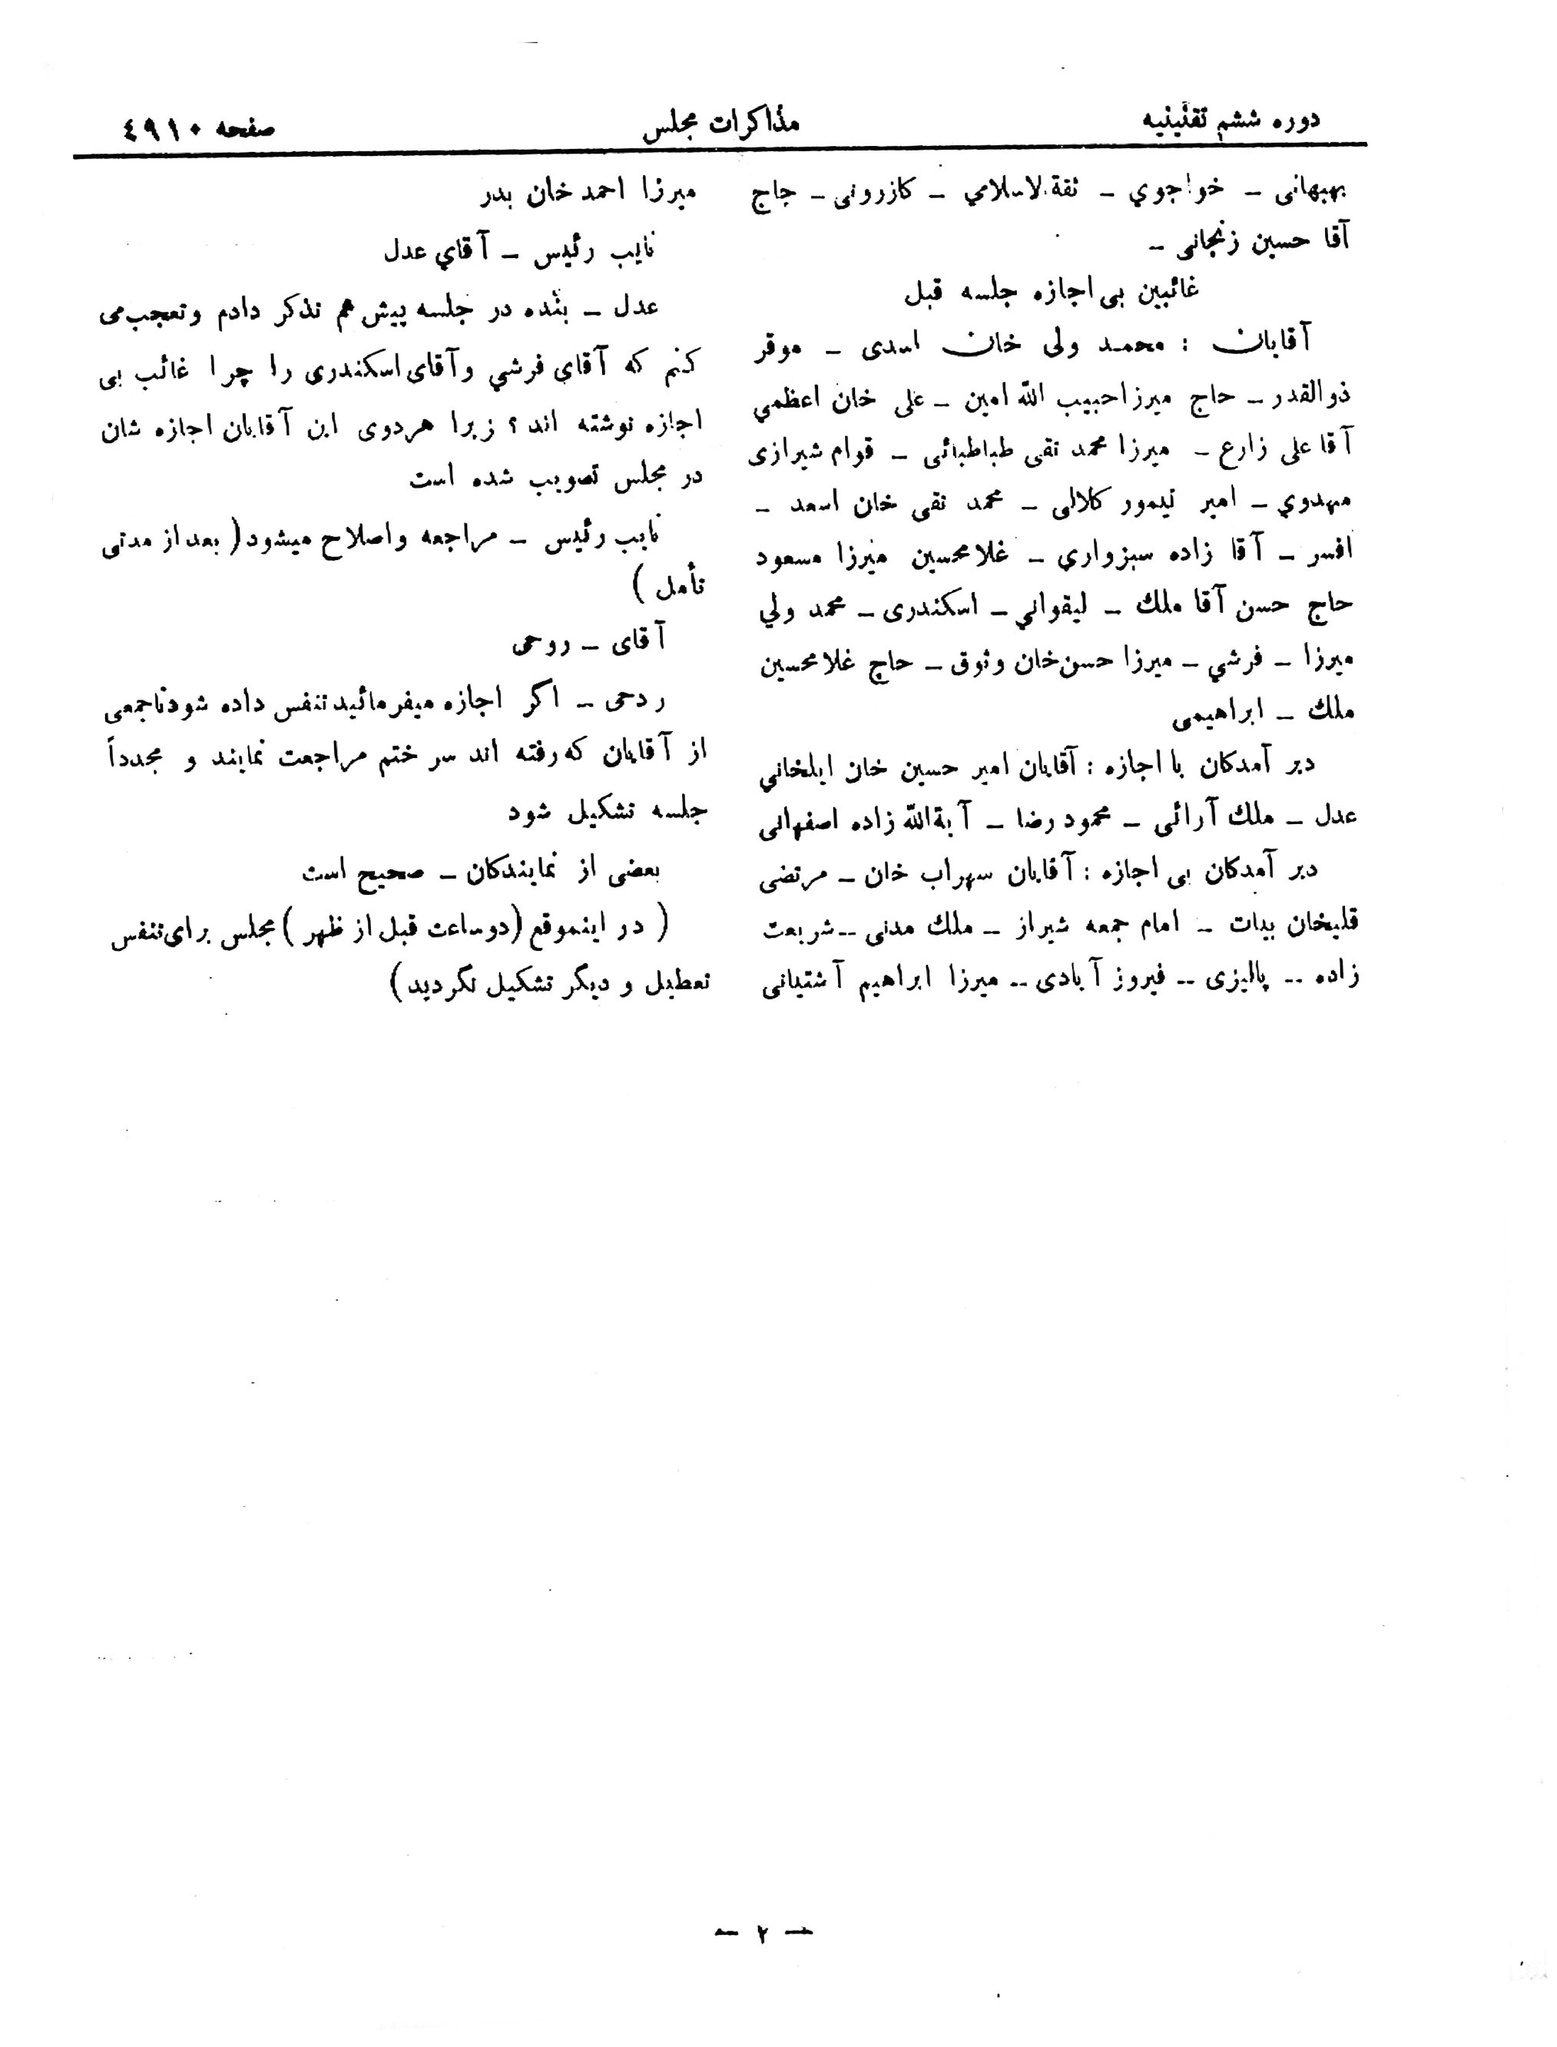 دوره ششم تقنینیه
مذاکرات مجلس
صفحه ٤٩١٠
بهبهانی ــ خواجوي ــ ثقةالاسلامي ــ کازرونی ــ حاج
آقا حسین زنجانی ــ
غائبین بی اجازه جلسه قبل
آقایان : محمد ولی خان اسدی ــ موقر
ذوالقدر ــ حاج میرزا حبیب الله امین ــ علی خان اعظمي
آقا علی زارع ــ میرزا محمد تقی طباطبائی ــ قوام شیرازی
مهدوي ــ امیر تیمور کلالی ــ محمد تقی خان اسعد ــ
افسر ــ آقا زاده سبزواري ــ غلامحسین میرزا مسعود
حاج حسن آقا ملك ــ لیقواني ــ اسکندری ــ محمد ولي
میرزا ــ فرشي ــ میرزا حسن خان وثوق ــ حاج غلامحسین
ملك ــ ابراهیمی
دیر آمدکان با اجازه : آقایان امیر حسین خان ایلخاني
عدل ــ ملك آرائی ــ محمود رضا ــ آیةالله زاده اصفهانی
دیر آمدکان بی اجازه : آقایان سهراب خان ــ مرتضی
قلیخان بیات ــ امام جمعه شیراز ــ ملك مدنی ــ شریعت
زاده ــ پالیزی ــ فیروز آبادی ــ میرزا ابراهیم آشتیانی
میرزا احمد خان بدر
نایب رئیس ــ آقاي عدل
عدل ــ بنده در جلسه پیش هم تذکر دادم و تعجب می
کنم که آقای فرشي و آقای اسکندری را چرا غائب بی
اجازه نوشته اند ؟ زیرا هردوی این آقایان اجازه شان
در مجلس تصویب شده است
نایب رئیس ــ مراجعه و اصلاح میشود ( بعد از مدتی
تأمل )
آقای ــ روحی
ردحی ــ اگر اجازه میفرمائید تنفس داده شود تا جمعی
از آقایان که رفته اند سر ختم مراجعت نمایند و مجدداً
جلسه تشکیل شود
بعضی از نمایندکان ــ صحیح است
( در اینموقع (دو ساعت قبل از ظهر ) مجلس برای تنفس
تعطیل و دیگر تشکیل نگردید )
— ٢ —